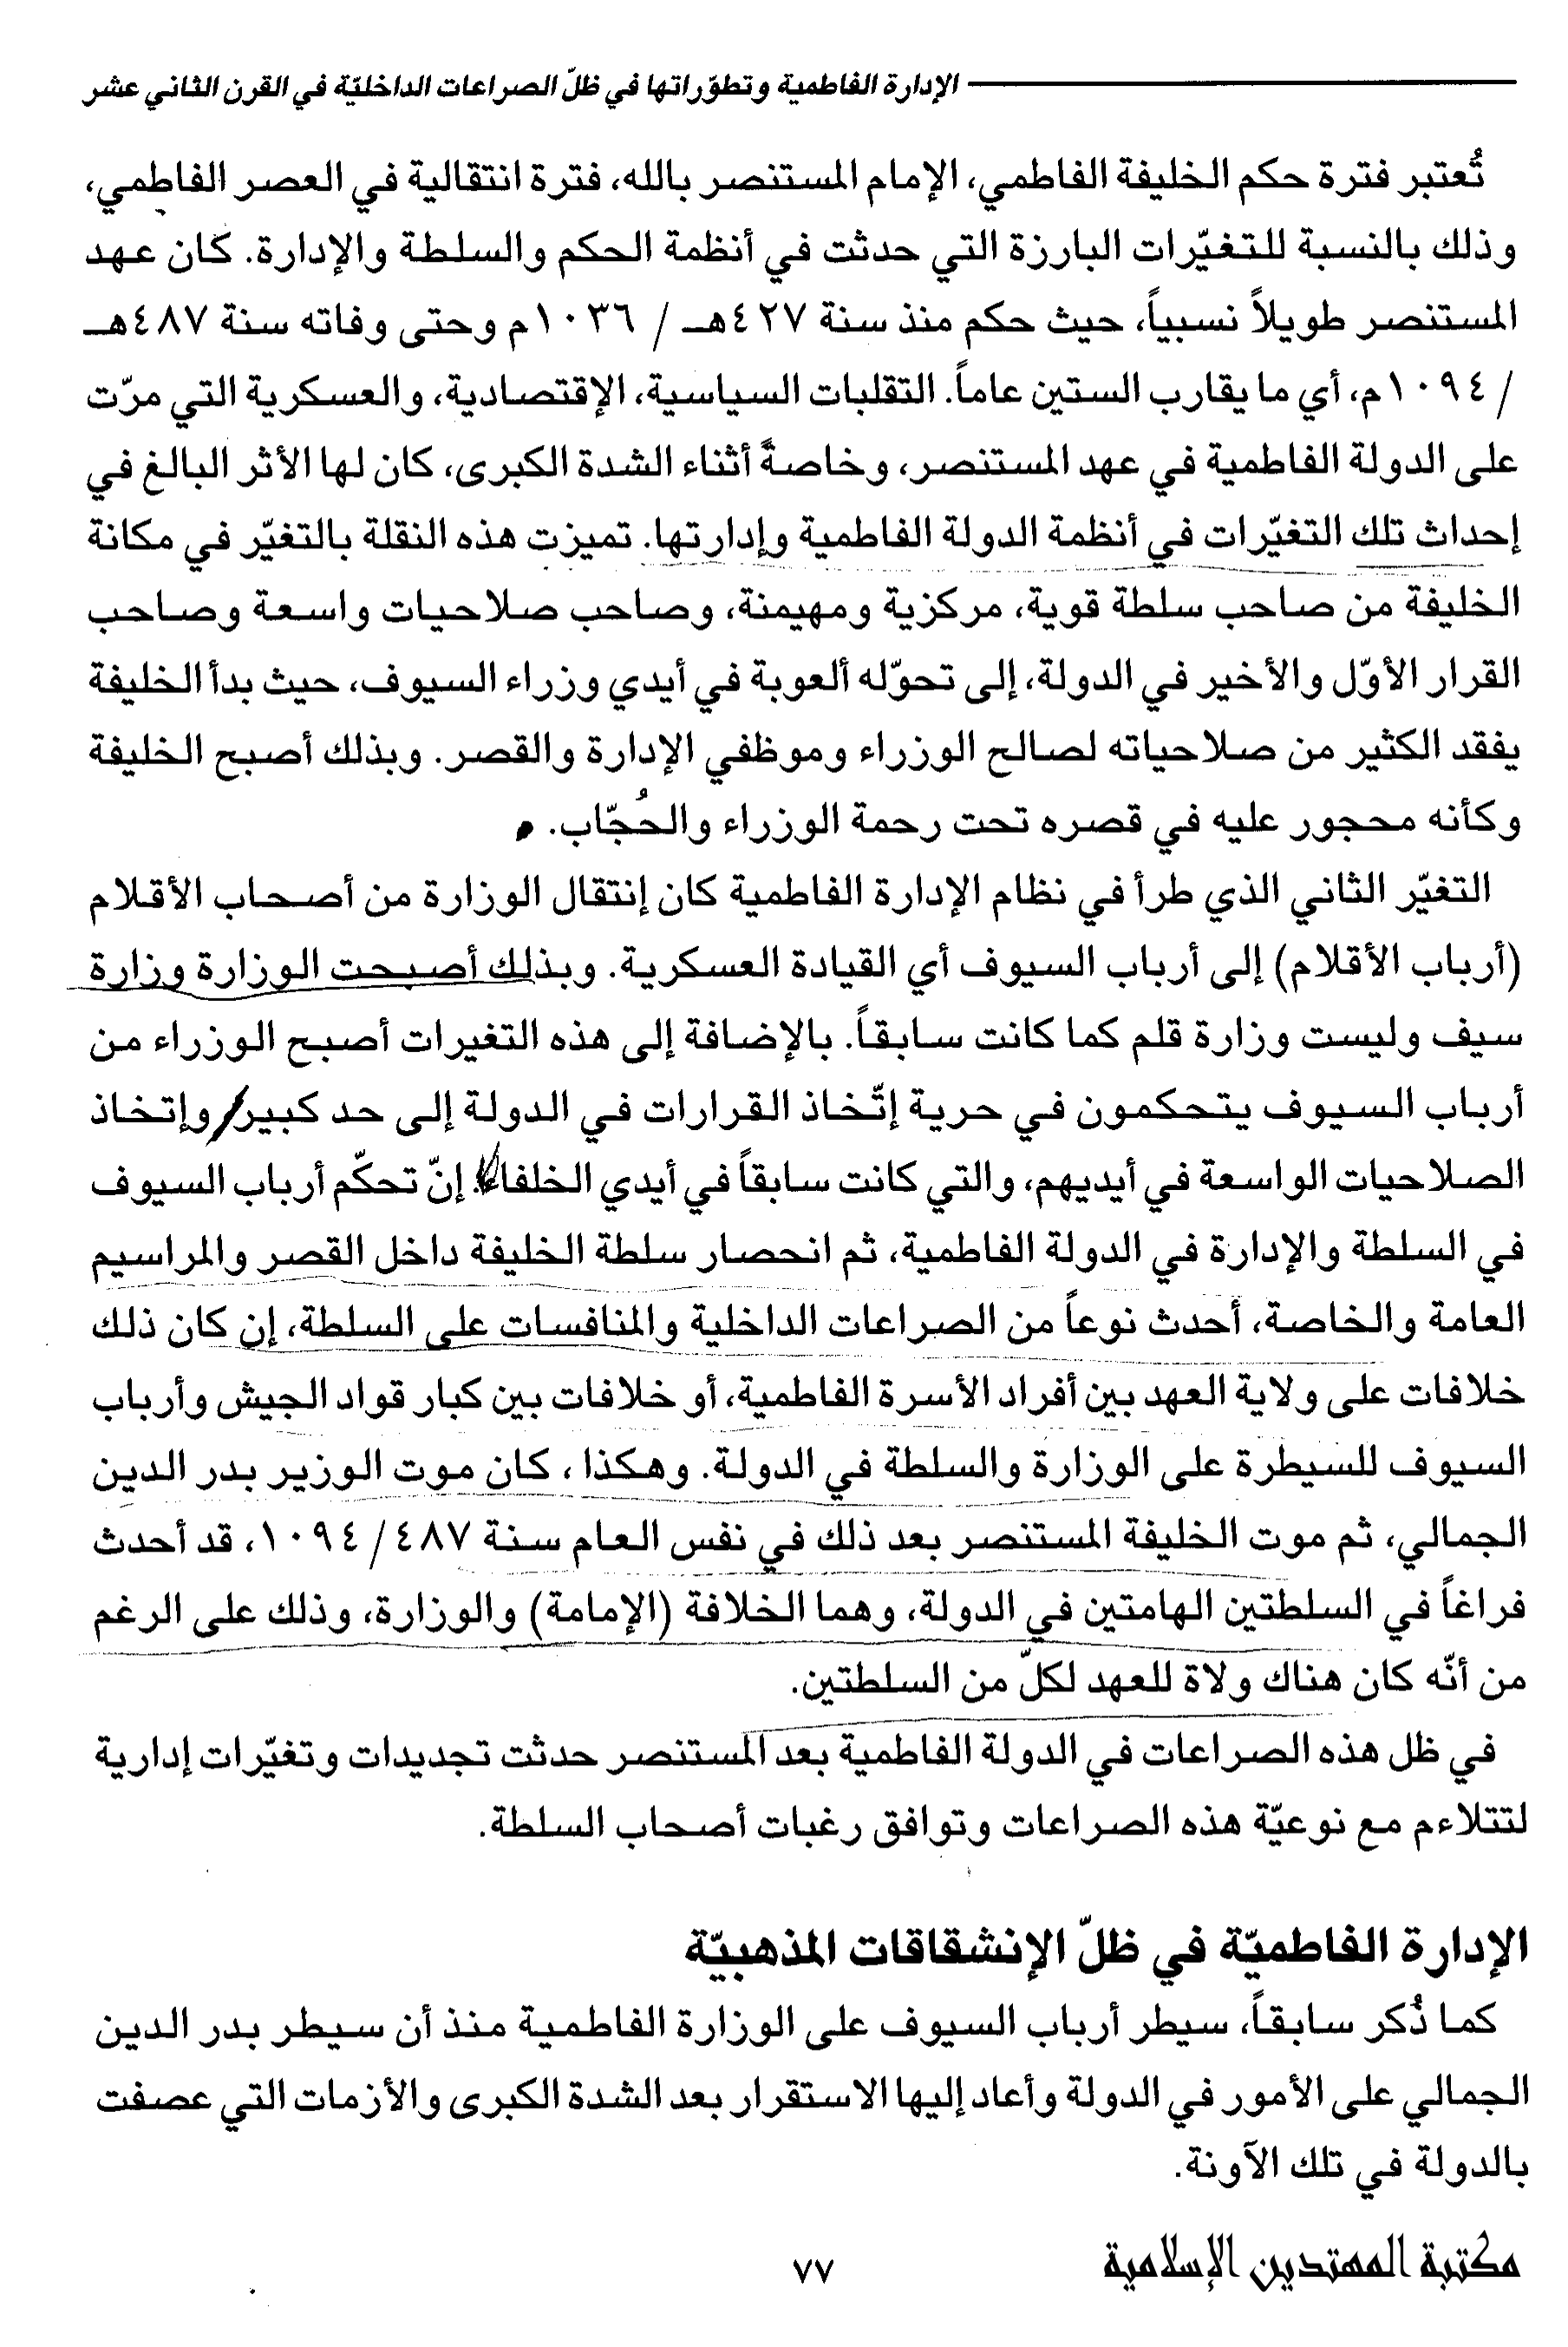 الإدارة الفاطمية وتطوّراتها في ظلّ الصراعات الداخليّة في القرن الثاني عشر
تُعتبر فترة حكم الخليفة الفاطمي، الإمام المستنصر بالله، فترة انتقالية في العصر الفاطمي،
وذلك بالنسبة للتغيّرات البارزة التي حدثت في أنظمة الحكم والسلطة والإدارة. كان عهد
المستنصر طويلاً نسبياً، حيث حكم منذ سنة ٤٢٧هـ / ١٠٣٦م وحتى وفاته سنة ٤٨٧هـ
/ ١٠٩٤م، أي ما يقارب الستين عاماً. التقلبات السياسية، الإقتصادية، والعسكرية التي مرّت
على الدولة الفاطمية في عهد المستنصر، وخاصةً أثناء الشدة الكبرى، كان لها الأثر البالغ في
إحداث تلك التغيّرات في أنظمة الدولة الفاطمية وإدارتها. تميزت هذه النقلة بالتغيّر في مكانة
الخليفة من صاحب سلطة قوية، مركزية ومهيمنة، وصاحب صلاحيات واسعة وصاحب
القرار الأوّل والأخير في الدولة، إلى تحوّله ألعوبة في أيدي وزراء السيوف، حيث بدأ الخليفة
يفقد الكثير من صلاحياته لصالح الوزراء وموظفي الإدارة والقصر. وبذلك أصبح الخليفة
وكأنه محجور عليه في قصره تحت رحمة الوزراء والحُجّاب.
التغيّر الثاني الذي طرأ في نظام الإدارة الفاطمية كان إنتقال الوزارة من أصحاب الأقلام
(أرباب الأقلام) إلى أرباب السيوف أي القيادة العسكرية. وبذلك أصبحت الوزارة وزارة
سيف وليست وزارة قلم كما كانت سابقاً. بالإضافة إلى هذه التغيرات أصبح الوزراء من
أرباب السيوف يتحكمون في حرية إتّخاذ القرارات في الدولة إلى حد كبير وإتخاذ
الصلاحيات الواسعة في أيديهم، والتي كانت سابقاً في أيدي الخلفاء. إنّ تحكّم أرباب السيوف
في السلطة والإدارة في الدولة الفاطمية، ثم انحصار سلطة الخليفة داخل القصر والمراسيم
العامة والخاصة، أحدث نوعاً من الصراعات الداخلية والمنافسات على السلطة، إن كان ذلك
خلافات على ولاية العهد بين أفراد الأسرة الفاطمية، أو خلافات بين كبار قواد الجيش وأرباب
السيوف للسيطرة على الوزارة والسلطة في الدولة. وهكذا ، كان موت الوزير بدر الدين
الجمالي، ثم موت الخليفة المستنصر بعد ذلك في نفس العام سنة ٤٨٧/ ١٠٩٤، قد أحدث
فراغاً في السلطتين الهامتين في الدولة، وهما الخلافة (الإمامة) والوزارة، وذلك على الرغم
من أنّه كان هناك ولاة للعهد لكلّ من السلطتين.
في ظل هذه الصراعات في الدولة الفاطمية بعد المستنصر حدثت تجديدات وتغيّرات إدارية
لتتلاءم مع نوعيّة هذه الصراعات وتوافق رغبات أصحاب السلطة.
الإدارة الفاطميّة في ظلّ الإنشقاقات المذهبيّة
كما ذُكر سابقاً، سيطر أرباب السيوف على الوزارة الفاطمية منذ أن سيطر بدر الدين
الجمالي على الأمور في الدولة وأعاد إليها الاستقرار بعد الشدة الكبرى والأزمات التي عصفت
بالدولة في تلك الآونة.
مكتبة المهتدين الإسلامية
٧٧